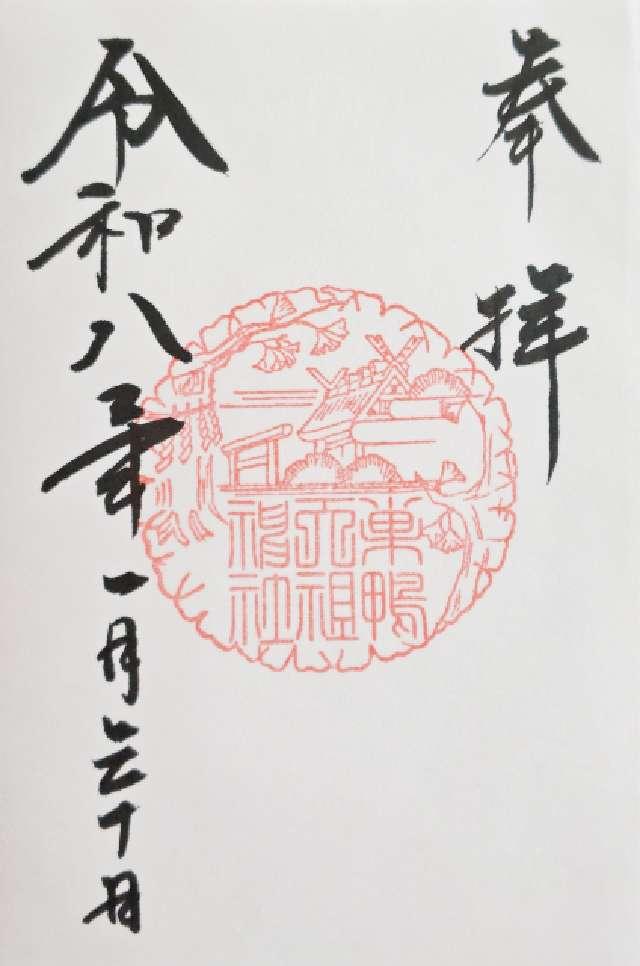 奉拝
巣鴨
天祖
神社
令和八年一月十日